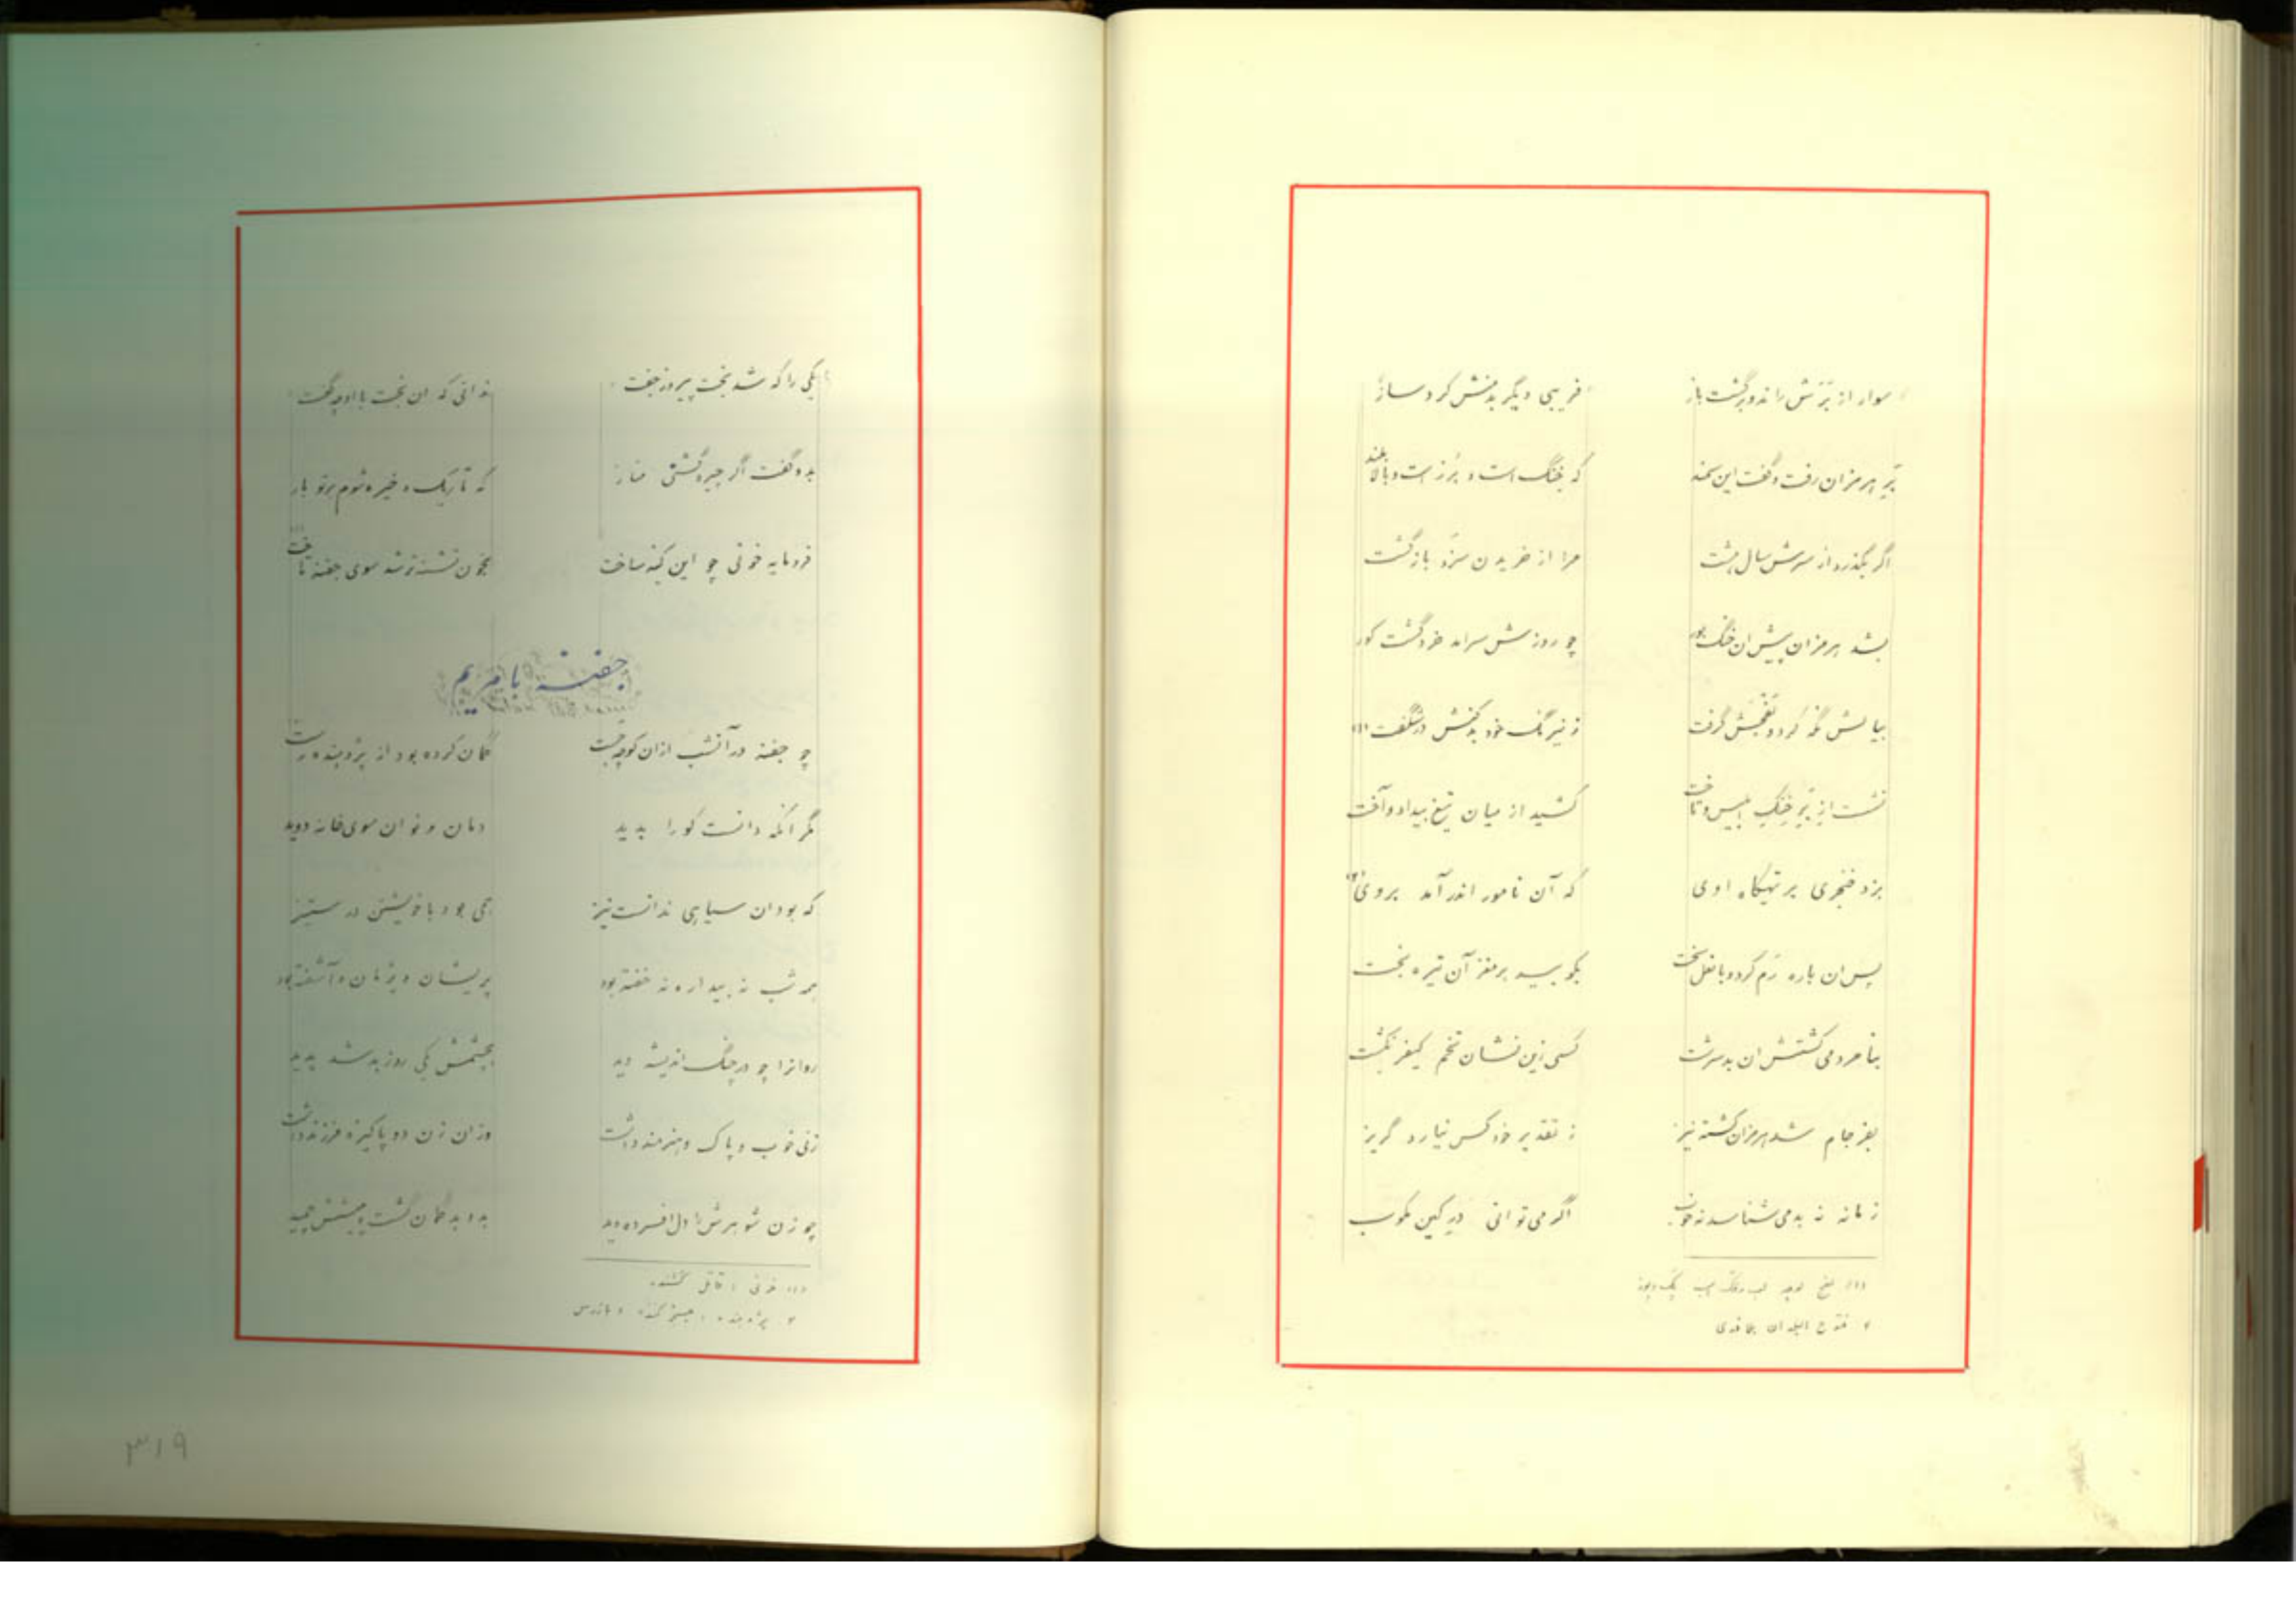 سوار از برش راند و برگشت باز    فریبی دیگر بدمنش کرد ساز
بر هرمزان رفت و گفت این سمند    که خنگ است و برز است و بالا بلند
اگر بگذرد از سرش سال هشت    مرا از خریدن سزد بازگشت
بشد هرمزان پیش ان خنگ بور    چو روزش سرامد خرد گشت کور
بیالش نگه کرد و گرفت    ز نیرنگ خود بدکنش در شگفت (۱)
نشست از بر خنگ ابلیس و تاخت    کشید از میان تیغ بیداد و آخت
بزد خنجری بر تهیگاه اوی    که آن نامور اندر آمد بروی (۲)
پس ان باره رم کرد و با نعل سخت    بکوبید بر مغز آن تیره بخت
بنامردمی کشتش ان بدسرشت    کسی زین نشان تخم کیفر نکشت
بفرجام شد هرمزان کشته نیز    ز تقدیر خود کس نیارد گریز
زمانه نه بد می شناسد نه خوب    اگر می توانی در کین مکوب
۲ فتوح البلدان بلاذری
یکی را که شد بخت پیروز جفت    ندانی که ان بخت با او چه گفت
بدو گفت اگر چیره گشتی مناز    که تاریک و خیره شوم بر تو باز
فرومایه خونی چو این کینه ساخت    بخون تشنه تر شد سوی جفنه تاخت (۱)
جفنه با مریم
چو جفنه در آنشب ازان کوچه جست    گمان کرده بود از پژوهنده رست
مگر آنکه دانست کورا بدید    دمان و نوان سوی خانه دوید
که بود ان سیاهی ندانست نیز    همی بود با خویشتن در ستیز
همه شب نه بیدار و نه خفته بود    پریشان و پژمان و آشفته بود
روانرا چو در چنگ اندیشه دید    بچشمش یکی روز بد شد پدید
زنی خوب و پاک و هنرمند داشت    وزان زن دو پاکیزه فرزند داشت
چو زن شوهرش را دل افسرده دید    بدو بدگمان گشت و پیشش چمید
(۱) خونی : قاتل کشنده
۲ پژوهنده : جستجو کننده و بازرس
۳۱۹